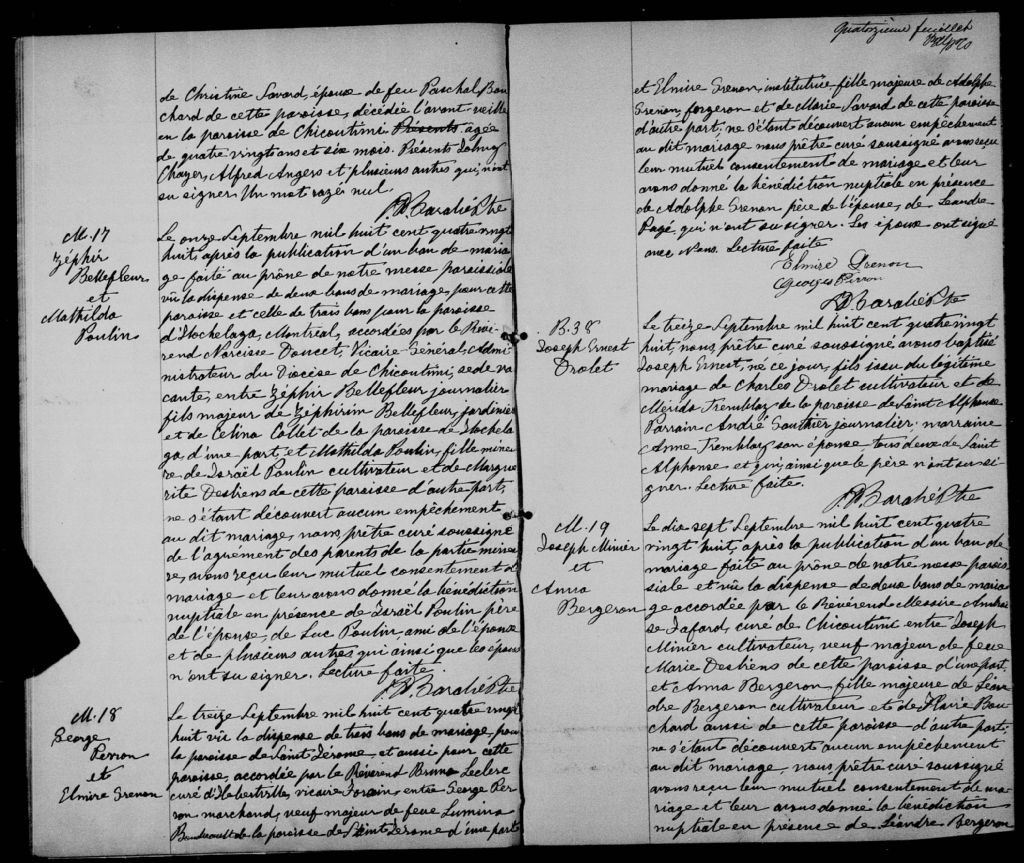 de Christine Savard, épouse de feu Paschal Bou
chard de cette paroisse, décédée l'avant veille
en la paroisse de Chicoutimi Présents agée
de quatre vingt ans et six mois. Présents Johnny
Chayer, Alfred Angers et plusieurs autres qui n'ont
su signer. Un mot rayé nul.
Ptre
M. 17
Zéphir
Bellefleur
et
Mathilda
Poulin
Le onze Septembre mil huit cent quatre vingt
huit, après la publication d'un ban de maria
ge faite au prône de notre messe paroissiale
vû la dispense de deux bans de mariage pour cette
paroisse et celle de trois bans pour la paroisse
d'Hochelaga, Montréal, accordées par le Révé
rend Narcisse Doucet, Vicaire-Général, Admi
nistrateur du Diocèse de Chicoutimi, sede va
cante, entre Zéphir Bellefleur journalier
fils majeur de Zéphirin Bellefleur, jardinier
et de Celina Collet de la paroisse de Hochela
ga d'une part, et Mathilda Poulin, fille mineu
re de Israël Poulin cultivateur et de Margue
rite Desbiens de cette paroisse d'autre part,
ne s'étant découvert aucun empêchement
au dit mariage, nous, prêtre curé soussigné
de l'agrément des parents de la partie mineu
re, avons reçu leur mutuel consentement de
mariage et leur avons donné la bénédiction
nuptiale en présence de Israël Poulin père
de l'épouse, de Luc Poulin, ami de l'épouse
et de plusieurs autres qui ainsi que les époux
n'ont su signer. Lecture faite.
Ptre
M. 18
George
Perron
et
Elmire Grenon
Le treize Septembre mil huit cent quatre vingt
huit vû la dispense de trois bans de mariage, pour
la paroisse de Saint Jérome et aussi pour cette
paroisse, accordée par le Révérend Bruno Leclerc
curé d'Hébertville, vicaire Forain, entre George Per
ron marchand, veuf majeur de feue Lumina
de la paroisse de Saint Jérome d'une part
Quatorzième feuillet
et Elmire Grenon, institutrice fille majeure de Adolphe
Grenon, forgeron et de Marie Savard de cette paroisse
d'autre part; ne s'étant découvert aucun empêchement
au dit mariage nous prêtre curé soussigné avons reçu
leur mutuel consentement de mariage et leur
avons donné la bénédiction nuptiale en présence
de Adolphe Grenon père de l'épouse, de Léandre
Pagé qui n'ont su signer. Les époux ont signé
avec Nous. Lecture faite
Elmire Grenon
Georges Perron
Ptre
B. 38
Joseph Ernest
Drolet
Le treize Septembre mil huit cent quatre vingt
huit, nous, prêtre curé soussigné avons baptisé
Joseph Ernest, né ce jour, fils issu du légitime
mariage de Charles Drolet cultivateur et de
Mérida Tremblay de la paroisse de Saint Alphonse
Parrain André Gauthier journalier marraine
Anne Tremblay son épouse tous deux de Saint
Alphonse et qui, ainsi que le père n'ont su si
gner. Lecture faite.
Ptre
M. 19
Joseph Minier
et
Anna
Bergeron
Le dix sept Septembre mil huit cent quatre
vingt huit, après la publication d'un ban de
mariage faite au prône de notre messe parois
siale et vû la dispense de deux bans de maria
ge accordée par le Révérend Messire Ambroi
se Fafard, curé de Chicoutimi entre Joseph
Minier cultivateur, veuf majeur de feue
Marie Desbiens de cette paroisse d'une part,
et Anna Bergeron, fille majeure de Léan
dre Bergeron cultivateur et de Flavie Bou
chard aussi de cette paroisse d'autre part;
ne s'étant découvert aucun empêchement
au dit mariage, nous, prêtre curé soussigné
avons reçu leur mutuel consentement de ma
riage et leur avons donné la bénédiction
nuptiale en présence de Léandre Bergeron